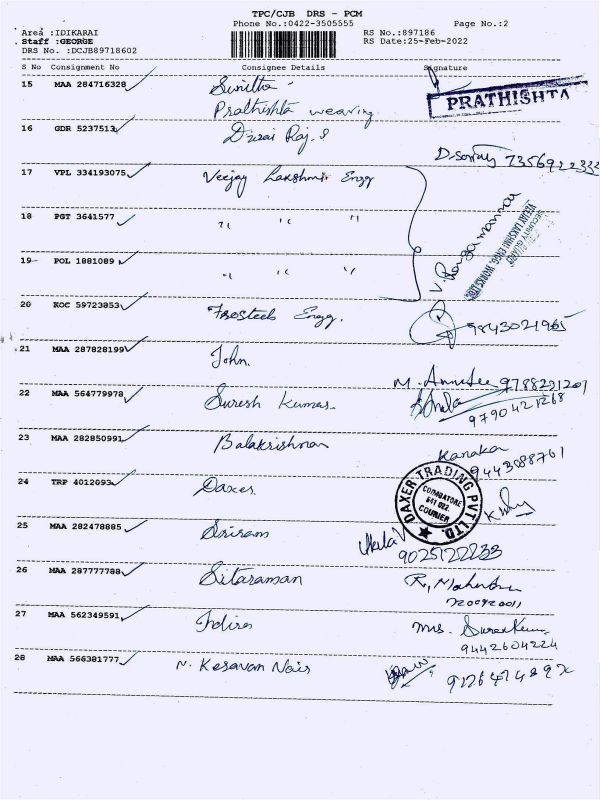 TPC/CJB DRS - PCM
Phone No.:0422-3505555 Page No.:2
Area :IDIKARAI RS No.:897186
Staff :GEORGE RS Date:25-Feb-2022
DRS No. :DCJB89718602
S No Consignment No Consignee Details Signature
15 MAA 284716328 Sunitha
Prathishta weaving PRATHISHTA
16 GDR 5237513 Durai Raj. S
7356922333
17 VPL 334193075 Veejay Lakshmi Engg
18 PGT 3641577 " " "
V. Rengamannar
SECURITY GUARD
VEEJAY LAKSHMI ENGG. WORKS LTD.
19 POL 1881089 " " "
20 KOC 59723853 Firesteels Engg. 9843021965
21 MAA 287828199 John.
M. 9788291201
22 MAA 564779978 Suresh Kumar.
9790421268
23 MAA 282850991 Balakrishnan Kanaka
9443088761
24 TRP 4012093 Daxer
DAXER TRADING PVT LTD.
COIMBATORE
641 022.
COURIER
25 MAA 282478885 Sriram
9025122233
26 MAA 287777788 Sitaraman R.
27 MAA 562349591 Indira Mrs.
9442604224
28 MAA 566381777 N. Kesavan Nair